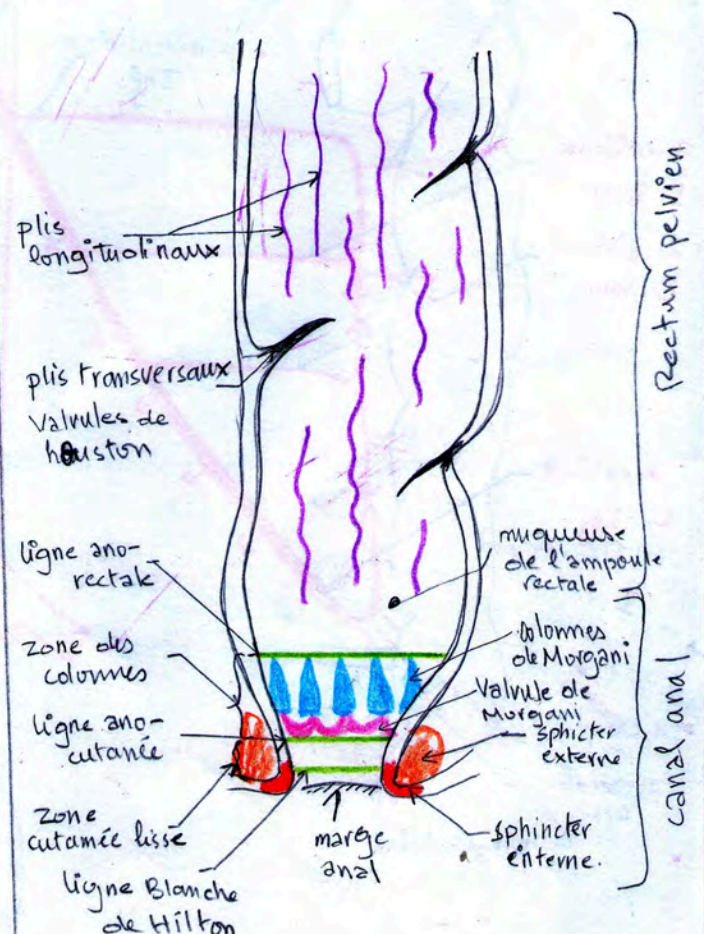 plis
longitudinaux
plis transversaux
Valvules de
houston
ligne ano-
rectale
zone des
colonnes
ligne ano-
cutanée
zone
cutanée lisse
ligne Blanche
de Hilton
marge
anal
muqueuse
de l'ampoule
rectale
colonnes
de Morgani
Valvule de
Morgani
sphicter
externe
sphincter
interne.
Rectum pelvien
canal anal